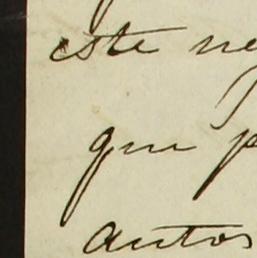 este ne
que p
autos